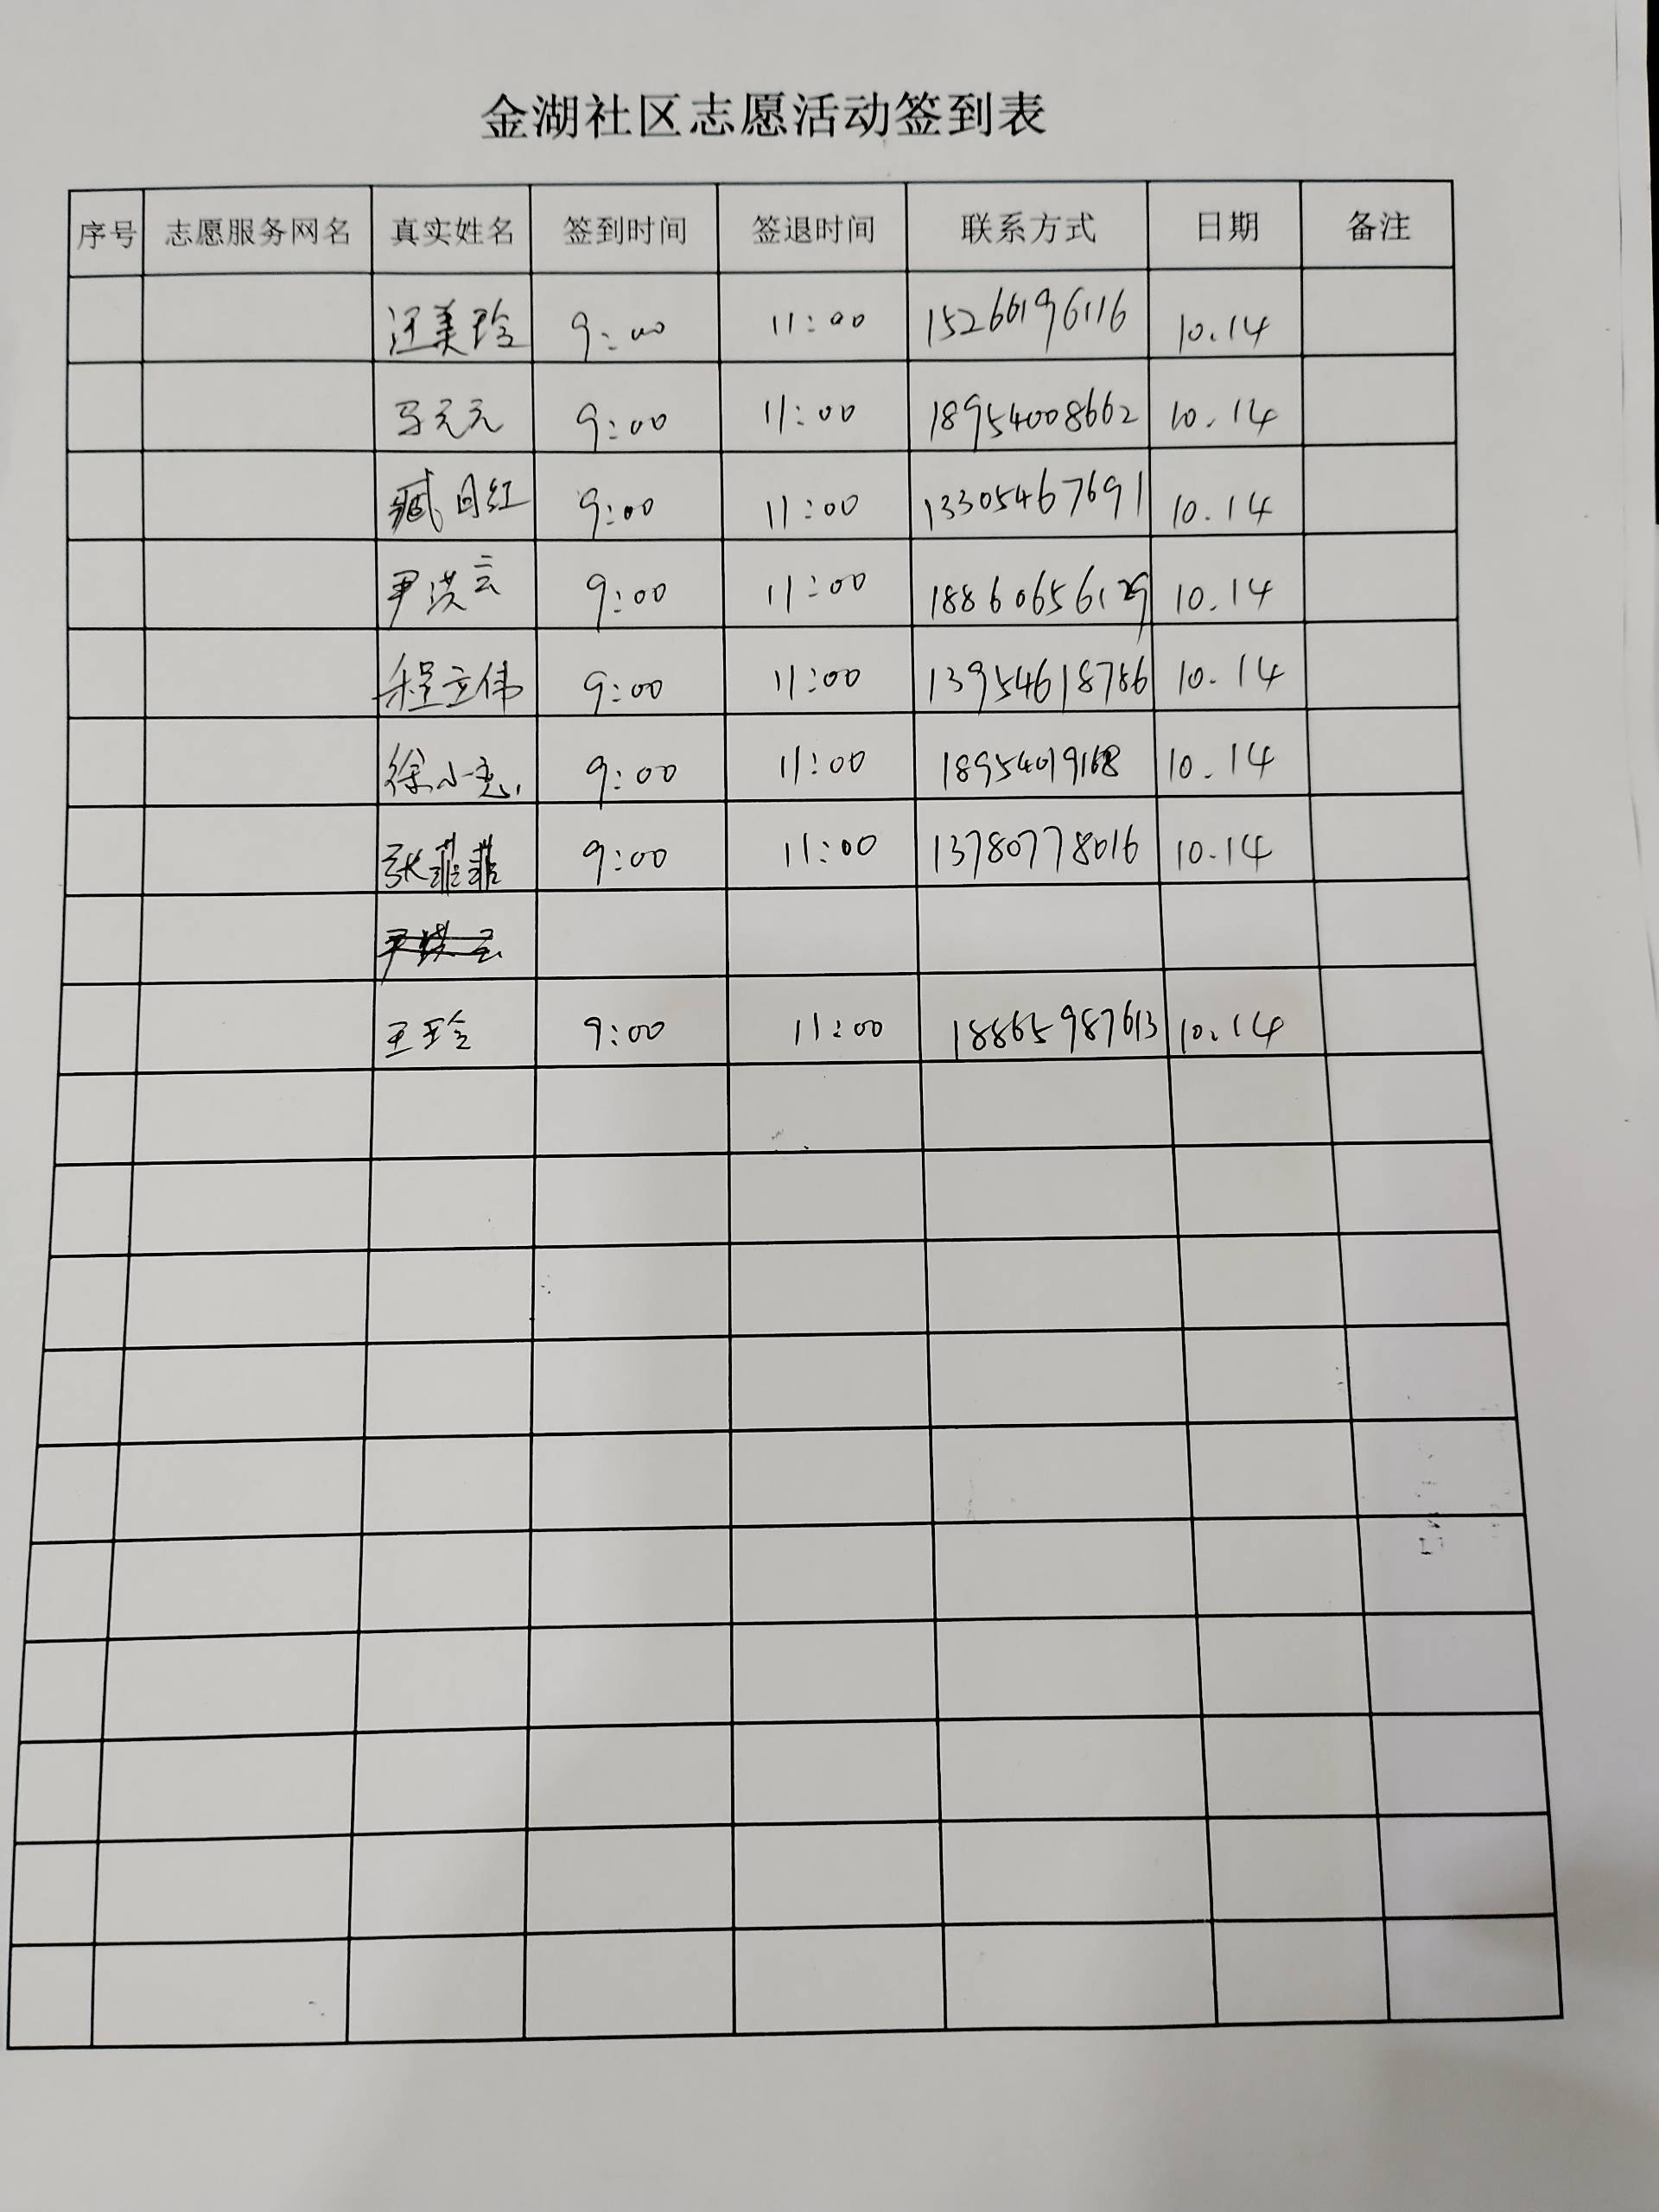 金湖社区志愿活动签到表
序号 志愿服务网名 真实姓名 签到时间 签退时间 联系方式 日期 备注
汪美玲 9:00 11:00 15266196116 10.14
马元元 9:00 11:00 18954008662 10.14
臧日红 9:00 11:00 13305467691 10.14
尹洪云 9:00 11:00 18860656129 10.14
程立伟 9:00 11:00 13954618786 10.14
徐小 9:00 11:00 18954019168 10.14
张菲菲 9:00 11:00 13780778016 10.14
尹洪云
王玲 9:00 11:00 18865987613 10.14